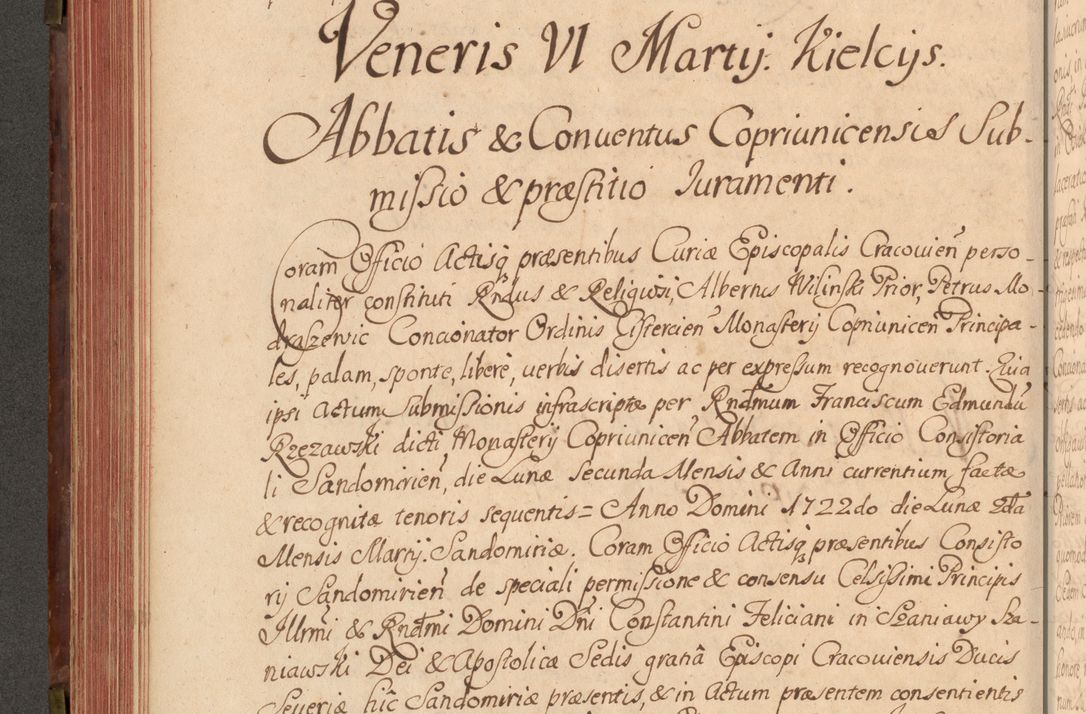 Veneris VI Martij. Kielcijs.
Abbatis & Conuentus Copriunicensis Sub-
missio & præstitio Iuramenti.
Coram Officio Actisq̃ præsentibus Curiæ Episcopalis Cracouien̄ perso-
naliter constituti Rndus & Religiosi, Albertus Wilinski Prior, Petrus Mo-
draszewic Concionator Ordinis Cistercien̄ Monasterij Copriunicen̄ Principa-
les, palam, sponte, libere, uerbis disertis ac per expressum recognouerunt. Quia
ipsi Actum Submissionis infrascriptæ per Rndm̄um Franciscum Edmundū
Rzezawski dicti Monasterij Copriunicen̄ Abbatem in Officio Consistoria
li Sandomirien̄, die Lunæ Secunda Mensis & Anni currentium factæ
& recognitæ tenoris sequentis = Anno Domini 1722do die Lunæ 2da
Mensis Martij. Sandomiriæ. Coram Officio Actisq̃ præsentibus Consisto
rij Sandomirien̄ de speciali permissione & consensu Celsissimi Principis
Illrmi & Rndm̄i Domini Dni Constantini Feliciani in Szaniawy Sza-
niawski Dei & Apostolicæ Sedis gratiâ Episcopi Cracouiensis Ducis
Seueriæ hîc Sandomiriæ præsentis, & in Actum præsentem consentientis